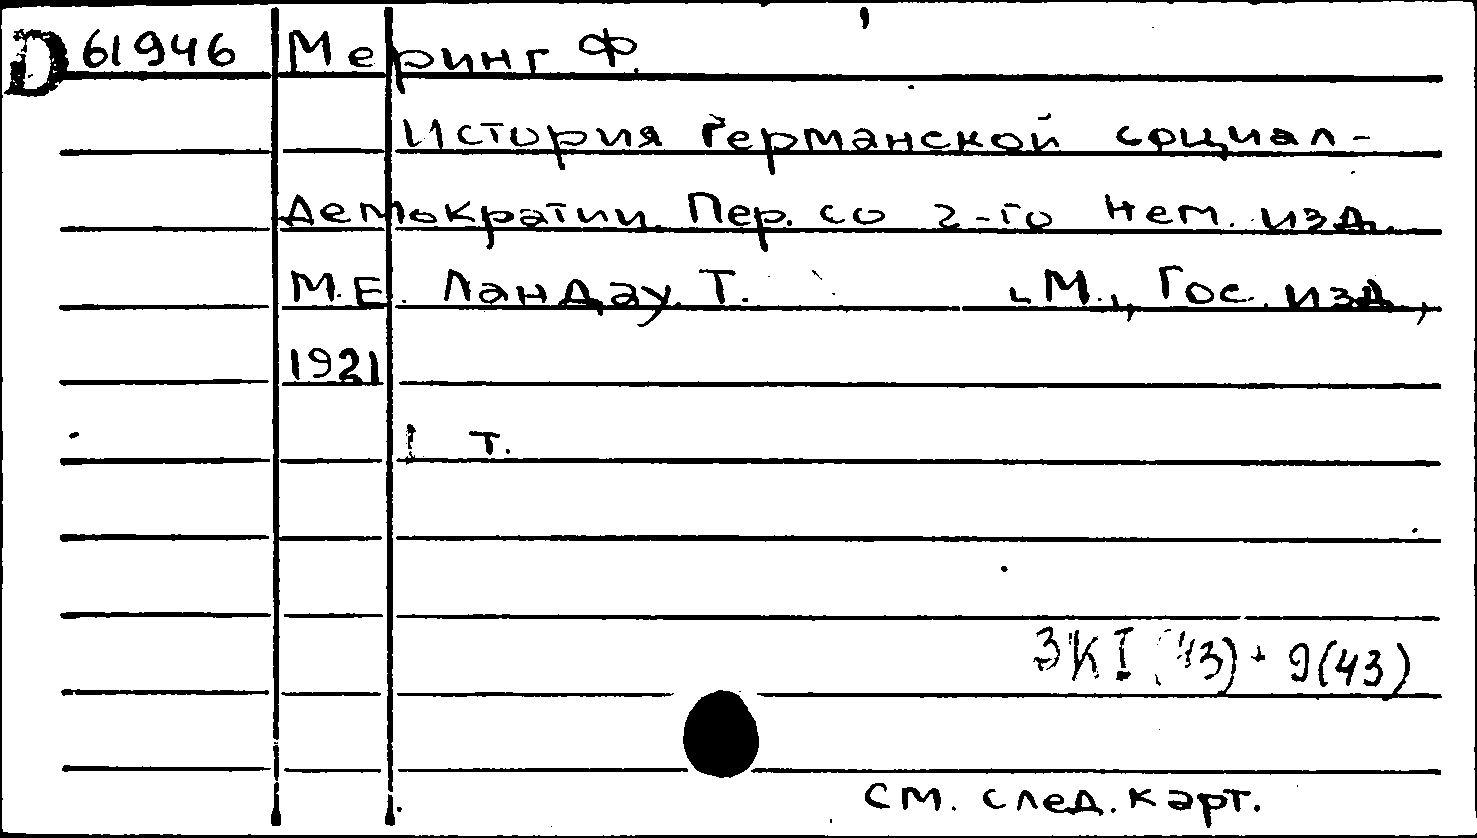 D 61946 Меринг Ф.
История Германской социал-
демократии. Пер. со 2-го нем. изд.
М.Е. Ландау. Т. М., Гос. изд.,
1921
1 т.
3КI(43) + 9(43)
см. след. карт.